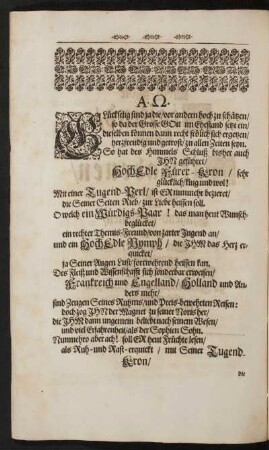 A. Ω.
Glückselig sind ja die / vor andern hoch zu schätzen /
so da der Grosse GOtt im Ehestand setzt ein /
dieselben können dann recht seblich sich ergetzen /
hertzfreudig und getrost / zu allen Zeiten seyn.
So hat des Himmels Schluß bisher auch
JHN geführet /
HochEdle Fürer-Kron / sehr
glücklich / klug und wol!
Mit einer Tugend-Perl / ist ER nunmehr bezieret /
die Seiner Seiten Rieb / zur Liebe heissen soll.
O welch ein Würdigs-Paar! das man heut Wunsch-
beglücket /
ein rechter Themis-Freund / von zarter Jugend an /
und ein HochEdle Nymph / die JHM das Herz er-
quicket /
ja Seiner Augen Lust / herwehrend heissen kan.
Des Fleiß und Wissenschafft sich sonderbar erweisen /
Franckreich und Engelland / Holland und An-
ders mehr /
sind Zeugen Seines Ruhms / und Preis-bewehrten Reisen:
hoch zog JHN der Magnet zu seiner Noris her /
die JHM dann ungemein beliebt nach seinem Wesen /
und viel Erfahrenheit / als der Sophien Sohn.
Nunmehro aber ach! soll ER heut Früchte lesen /
als Ruh- und Rast-erquickt / mit Seiner Tugend-
Kron /
die